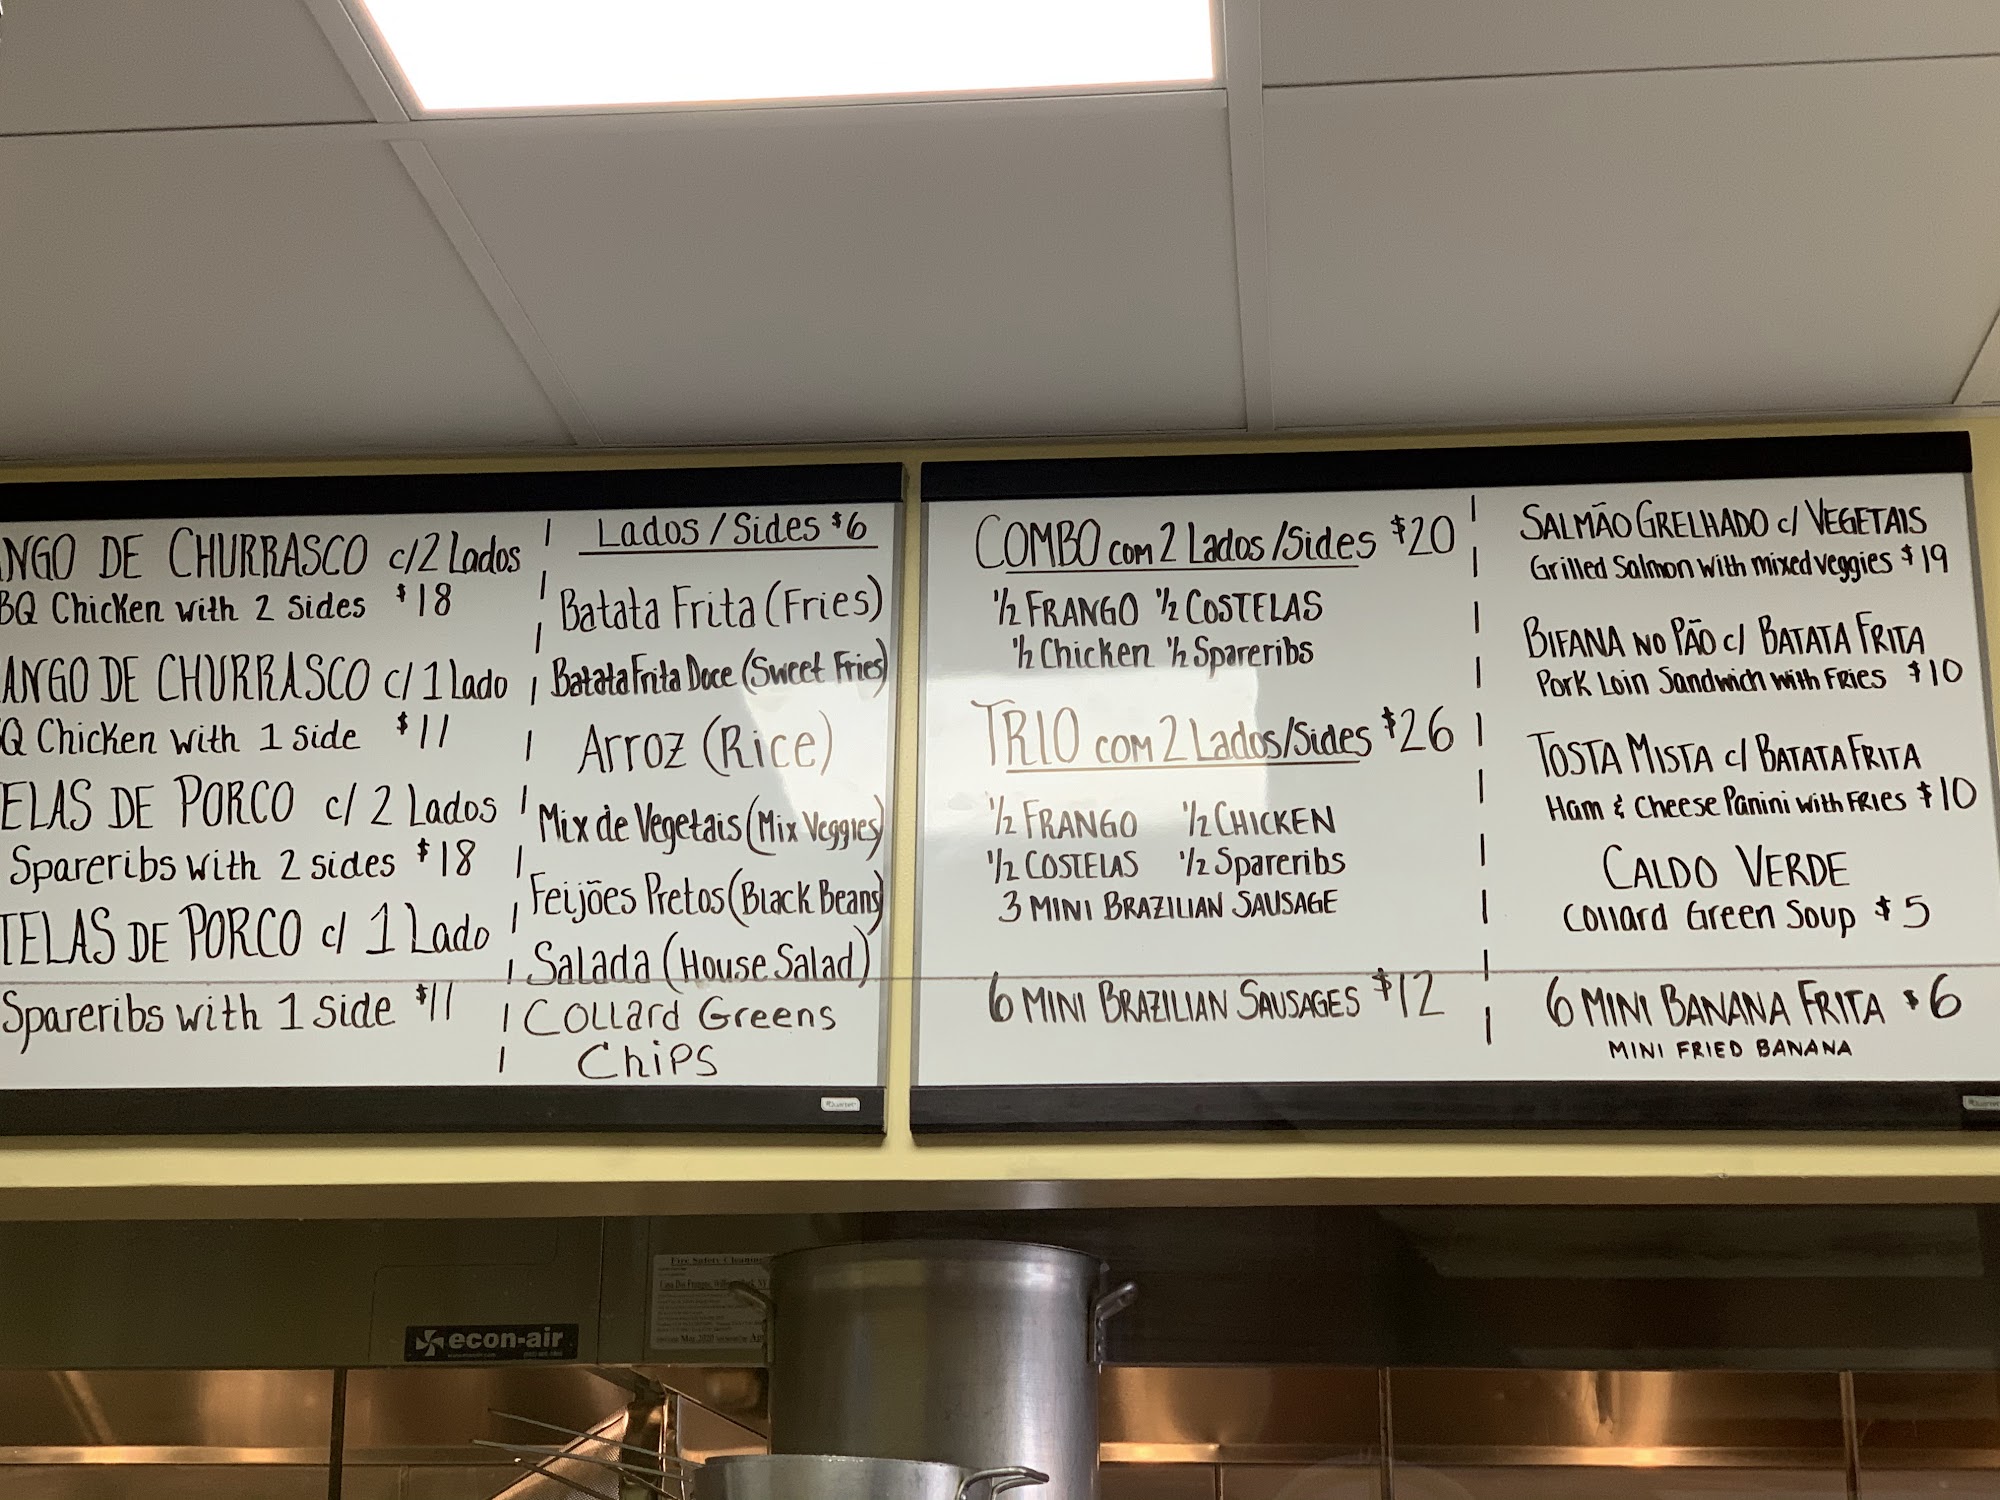 NGO DE CHURRASCO c/2 Lados
BQ Chicken with 2 Sides $18
ANGO DE CHURRASCO c/ 1 Lado
Q Chicken with 1 Side $11
ELAS DE PORCO c/ 2 Lados
Spareribs with 2 sides $18
TELAS DE PORCO c/ 1 Lado
Spareribs with 1 Side $11
Lados / Sides $6
Batata Frita (Fries)
Batata Frita Doce (Sweet Fries)
Arroz (Rice)
Mix de Vegetais (Mix Veggies)
Feijões Pretos (Black Beans)
Salada (House Salad)
Collard Greens
Chips
COMBO com 2 Lados /Sides $20
1/2 FRANGO 1/2 COSTELAS
1/2 Chicken 1/2 Spareribs
TRIO com 2 Lados/Sides $26
1/2 FRANGO 1/2 CHICKEN
1/2 COSTELAS 1/2 Spareribs
3 MINI BRAZILIAN SAUSAGE
6 MINI BRAZILIAN SAUSAGES $12
SALMÃO GRELHADO c/ VEGETAIS
Grilled Salmon with mixed veggies $19
BIFANA NO PÃO c/ BATATA FRITA
Pork Loin Sandwich with Fries $10
TOSTA MISTA c/ BATATA FRITA
Ham & Cheese Panini with Fries $10
CALDO VERDE
Collard Green Soup $5
6 MINI BANANA FRITA $6
MINI FRIED BANANA
Fire Safety Cleaning
econ-air